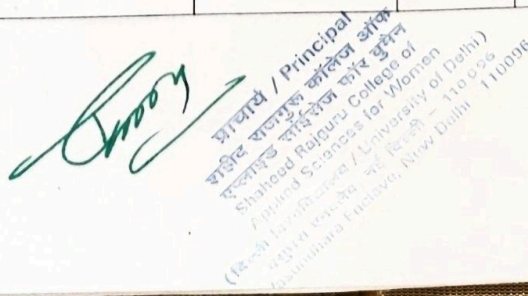 प्राचार्य / Principal
शहीद राजगुरू कॉलेज ऑफ
एप्लाइड साईंसेज फॉर वुमेन
Shaheed Rajguru College of
Applied Sciences for Women
(दिल्ली विश्वविद्यालय / University of Delhi)
वसुंधरा एनक्लेव, नई दिल्ली - 110 096
Vasundhara Enclave, New Delhi 110096